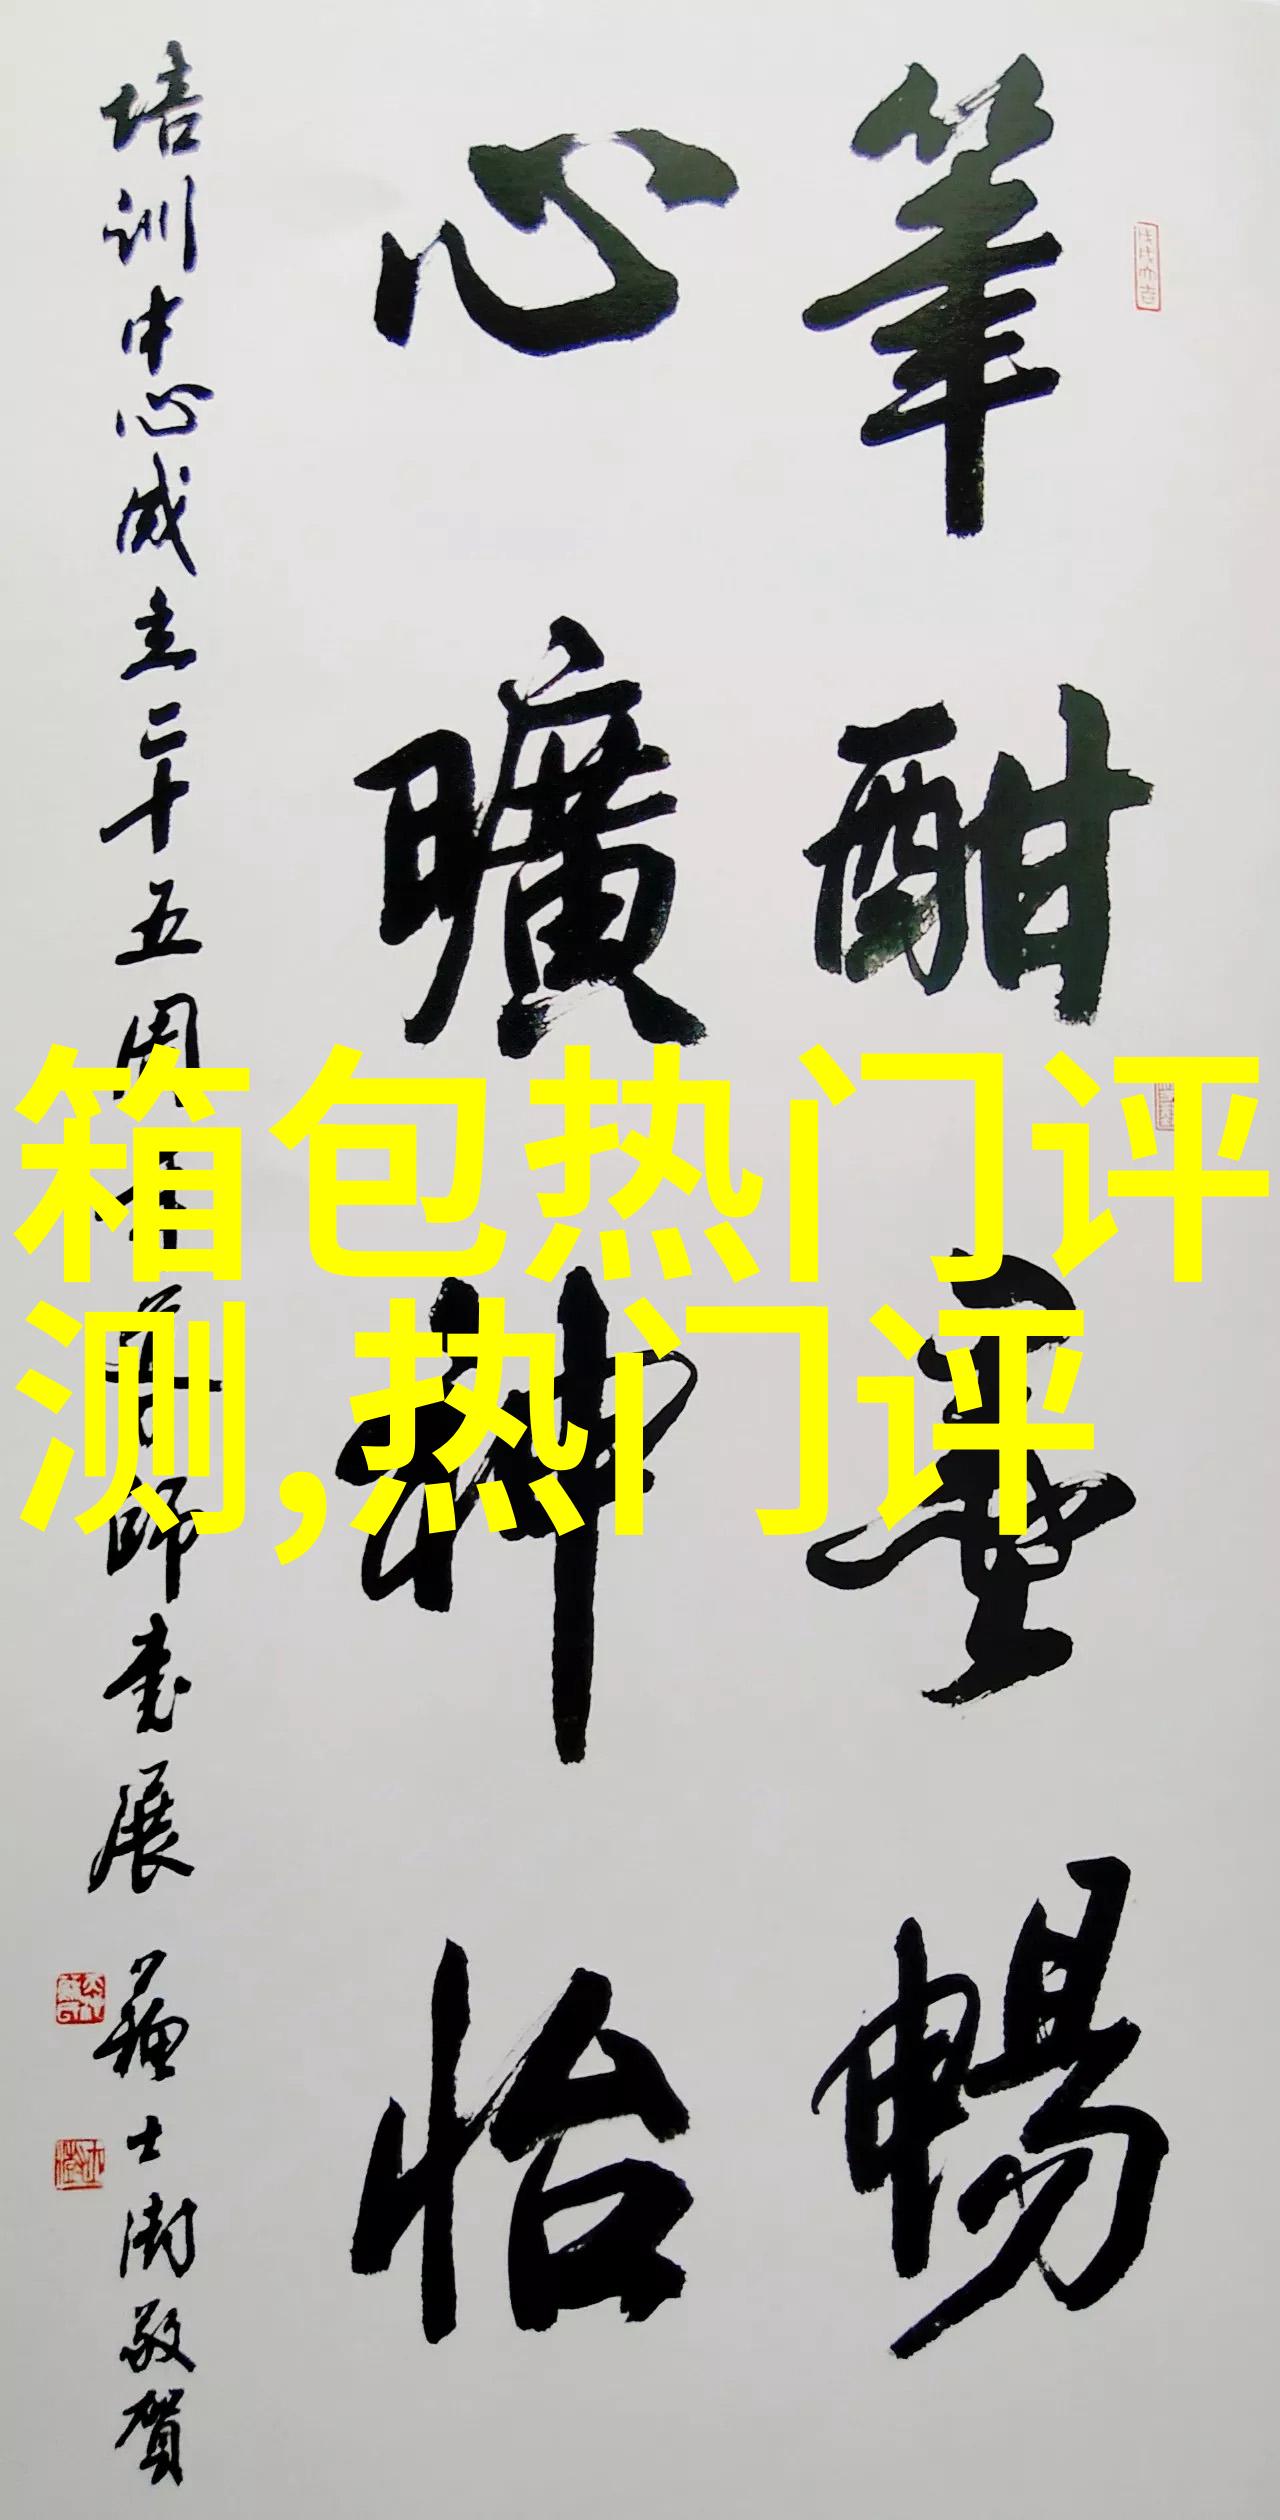 筆酣墨暢
心曠神怡
培训中心成立二十五周年
師書展
敬贺
箱包热门评
测,热门评